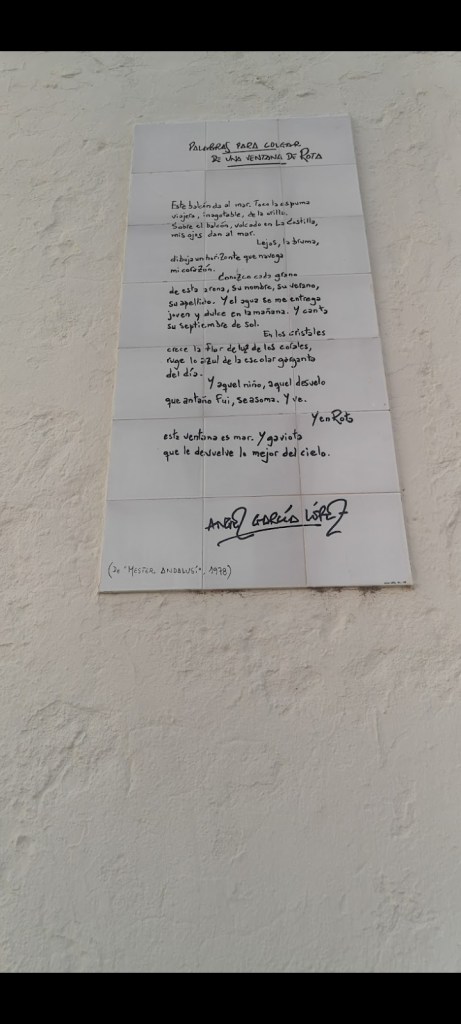 PALABRAS PARA COLGAR
DE UNA VENTANA DE ROTA
Este balcón da al mar. Toco la espuma
viajera, inagotable, de la orilla.
Sobre el balcón, volcado en La Costilla,
mis ojos dan al mar.
Lejos, la bruma,
dibuja un horizonte que navega
mi corazón.
Conozco cada grano
de esta arena, su nombre, su verano,
su apellido. Y el agua se me entrega
joven y dulce en la mañana. Y canta
su septiembre de sol.
En los cristales
crece la flor de luz de los corales,
ruge lo azul de la escolar garganta
del día.
Y aquel niño, aquel desvelo
que antaño fui, se asoma. Y ve.
Y en Rota
esta ventana es mar. Y gaviota
que le devuelve lo mejor del cielo.
ANGEL GARCÍA LÓPEZ
(De "MESTER ANDALUSÍ", 1978)